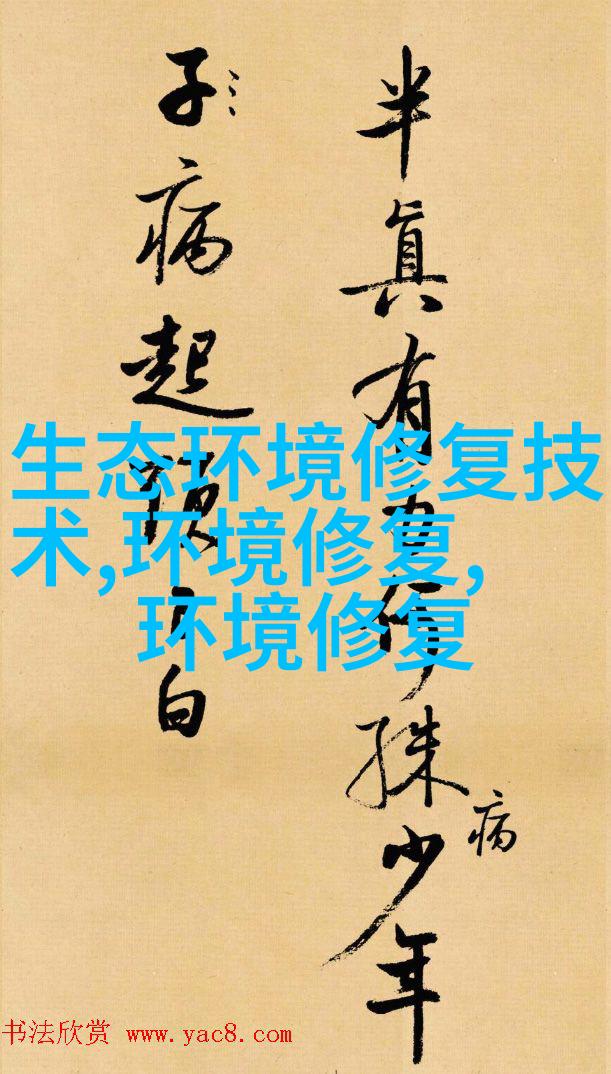 半真有力何殊病少年
子病起須已白
生态环境修复技
术,环境修复,
环境修复
书法欣赏 www.yac8.com